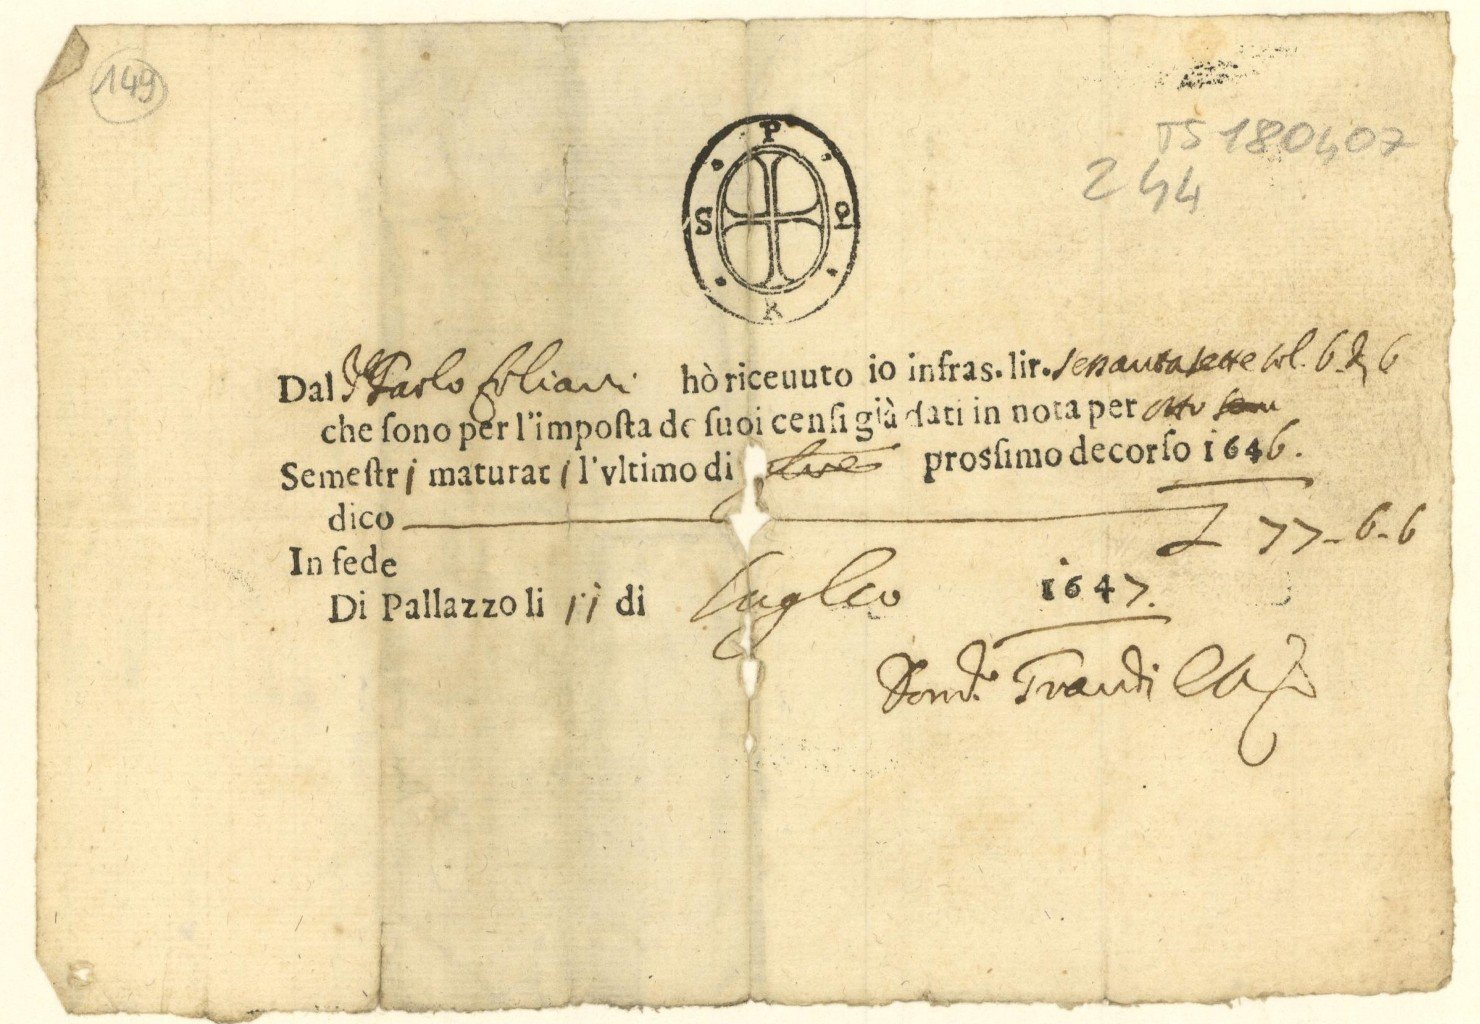 149
TS 180407
244
P
S Q
R
Dal Carlo hò riceuuto io infras. lir. settantasette sol. 6. d. 6
che sono per l'imposta de suoi censi già dati in nota per otto
Semestri maturati l'vltimo di prossimo decorso 1646.
dico £ 77-6-6
In fede
Di Pallazzo li 11 di Luglio 1647.